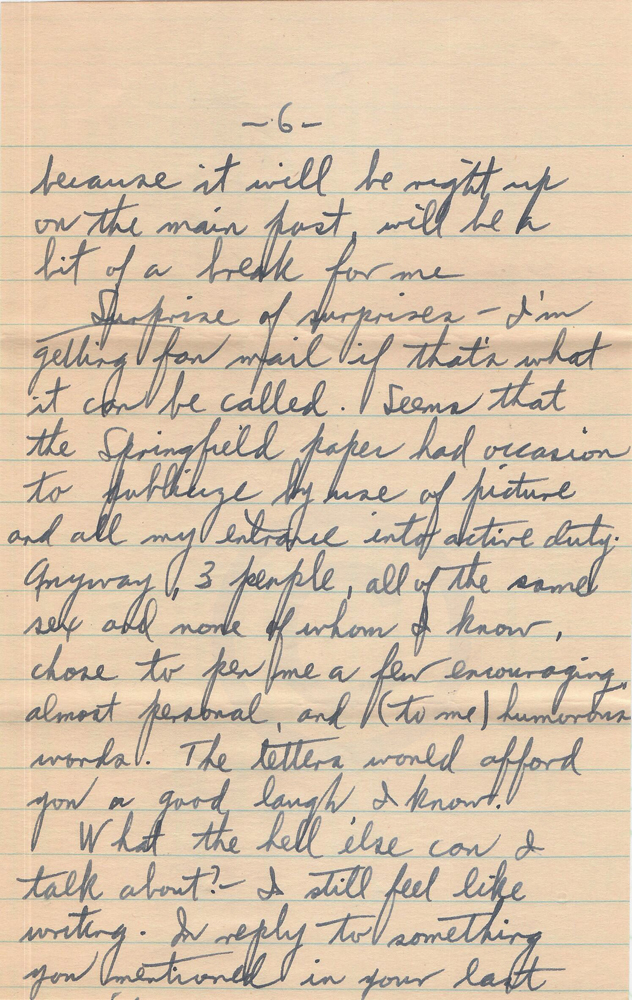 -6-
because it will be right up
on the main post, will be a
bit of a break for me
Surprise of surprises - I'm
getting fan mail if that's what
it can be called. Seems that
the Springfield paper had occasion
to publicize by use of picture
and all my entrance into active duty.
Anyway, 3 people, all of the same
sex and none of whom I know,
chose to pen me a few encouraging,
almost personal, and (to me) humorous
words. The letters would afford
you a good laugh I know.
What the hell else can I
talk about? - I still feel like
writing. In reply to something
you mentioned in your last